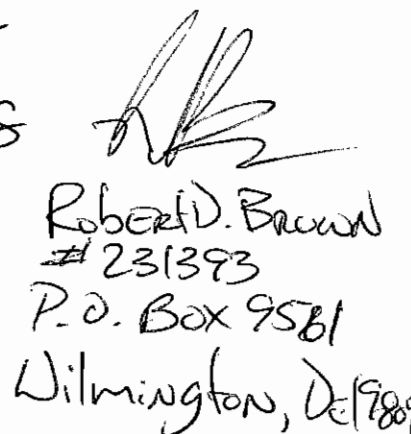 Robert D. Brown
# 231393
P.O. Box 9561
Wilmington, De